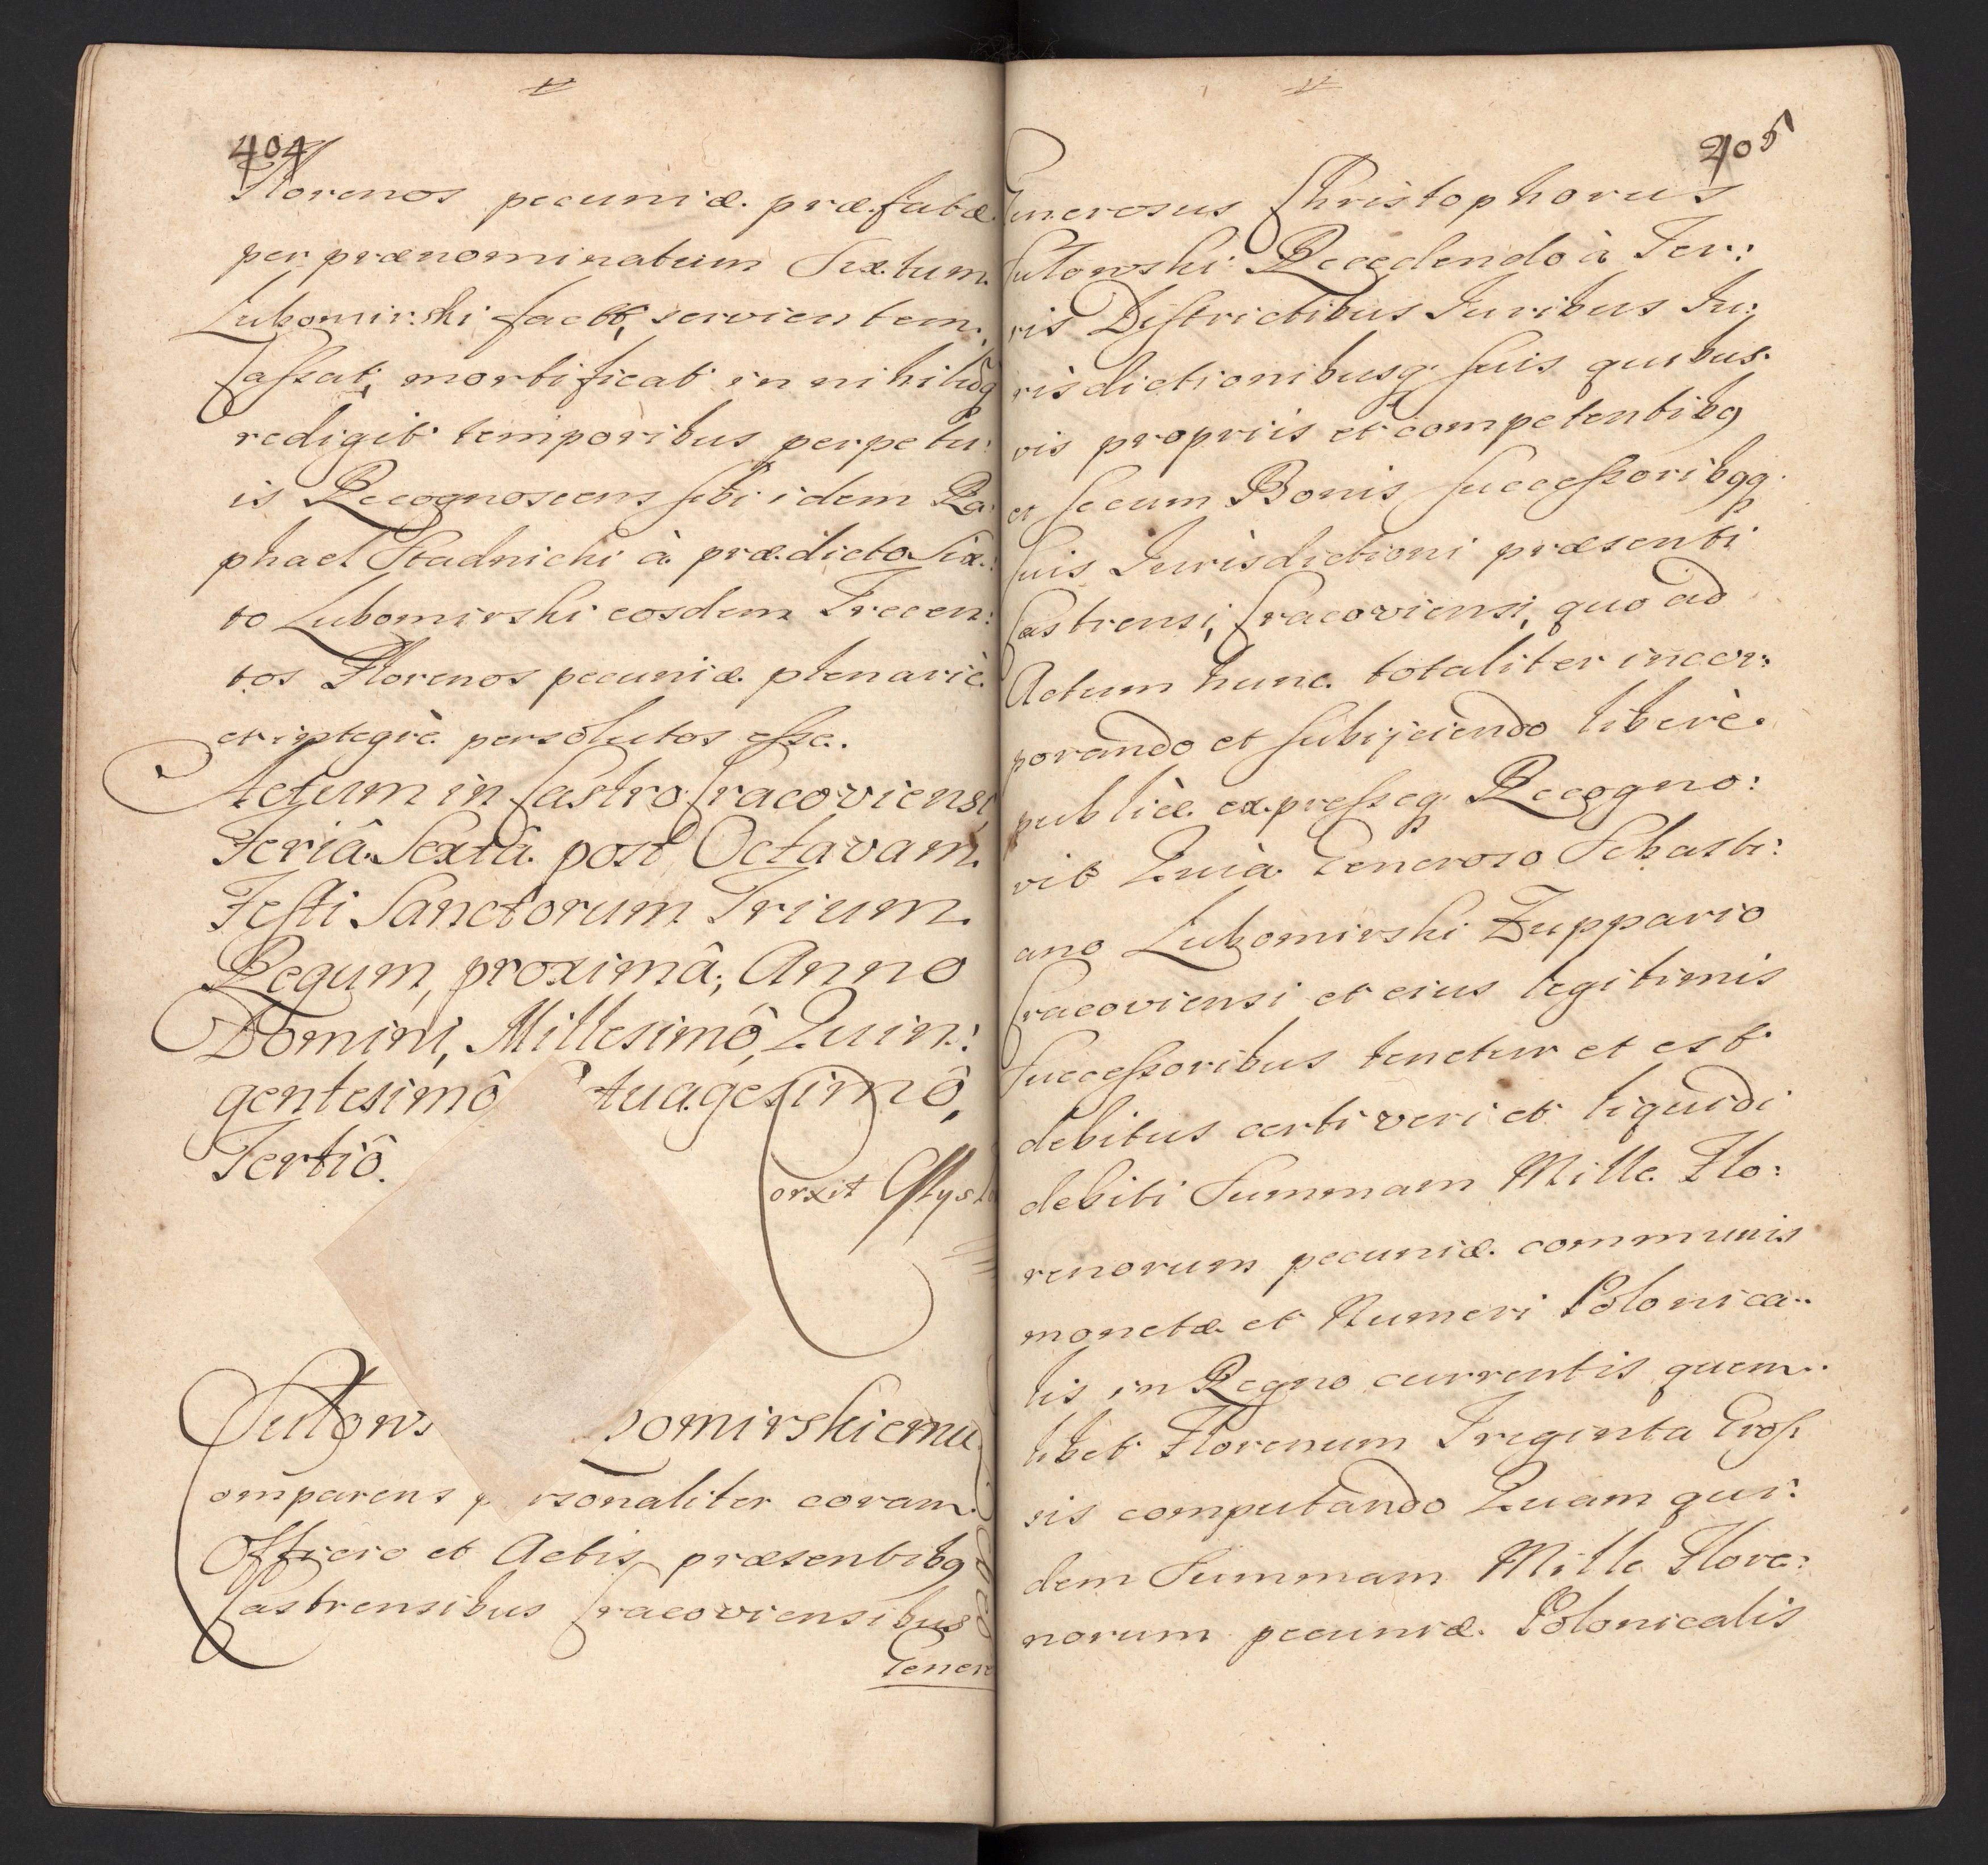 404
Florenos pecuniæ præfatæ
per prænominatum Sixtum
Lubomirski factt, servientem,
Cassat, mortificat in nihilũq
redigit temporibus perpetu:
is Recognoscens sibi idem Ra:
phael Stadnicki à prædicto Six:
to Lubomirski eosdem Trecen:
tos Florenos pecuniæ plenariè
et integrè persolutos esse.
Actum in Castro Cracoviensi,
Feriâ Sextâ post Octavam
Festi Sanctorum Trium
Regum, proximâ, Anno
Domini, Millesimô, Quin:
gentesimô tuagesimô,
Tertiô.
Sulows omirskiemu
omparens p rsonaliter coram
Officio et Actis præsentibq
Castrensibus Cracoviensibus
Genero
405
Generosus Christophorus
Sulowski Recedendo à Ter:
ris Districtibus Iuribus Iu:
risdictionibusq suis quibus
vis propriis et competentibq
et secum Bonis successoribqq
suis Iurisdictioni præsenti
Castrensi, Cracoviensi, quo ad
Actum hunc totaliter incor:
porando et subijciendo liberè
publicè expresseq Recogno:
vit Quia Generoso Sebasti:
ano Lubomirski Zuppario
Cracoviensi et eius legitimis
successoribus tenetur et est
debitus certi veri et liquidi
debiti Summam Mille Flo:
renorum pecuniæ communis
monetæ et Numeri Polonica:
lis in Regno currentis quem:
libet Florenum Triginta Gros:
sis computando Quam qui:
dem Summam Mille Flore:
norum pecuniæ Polonicalis